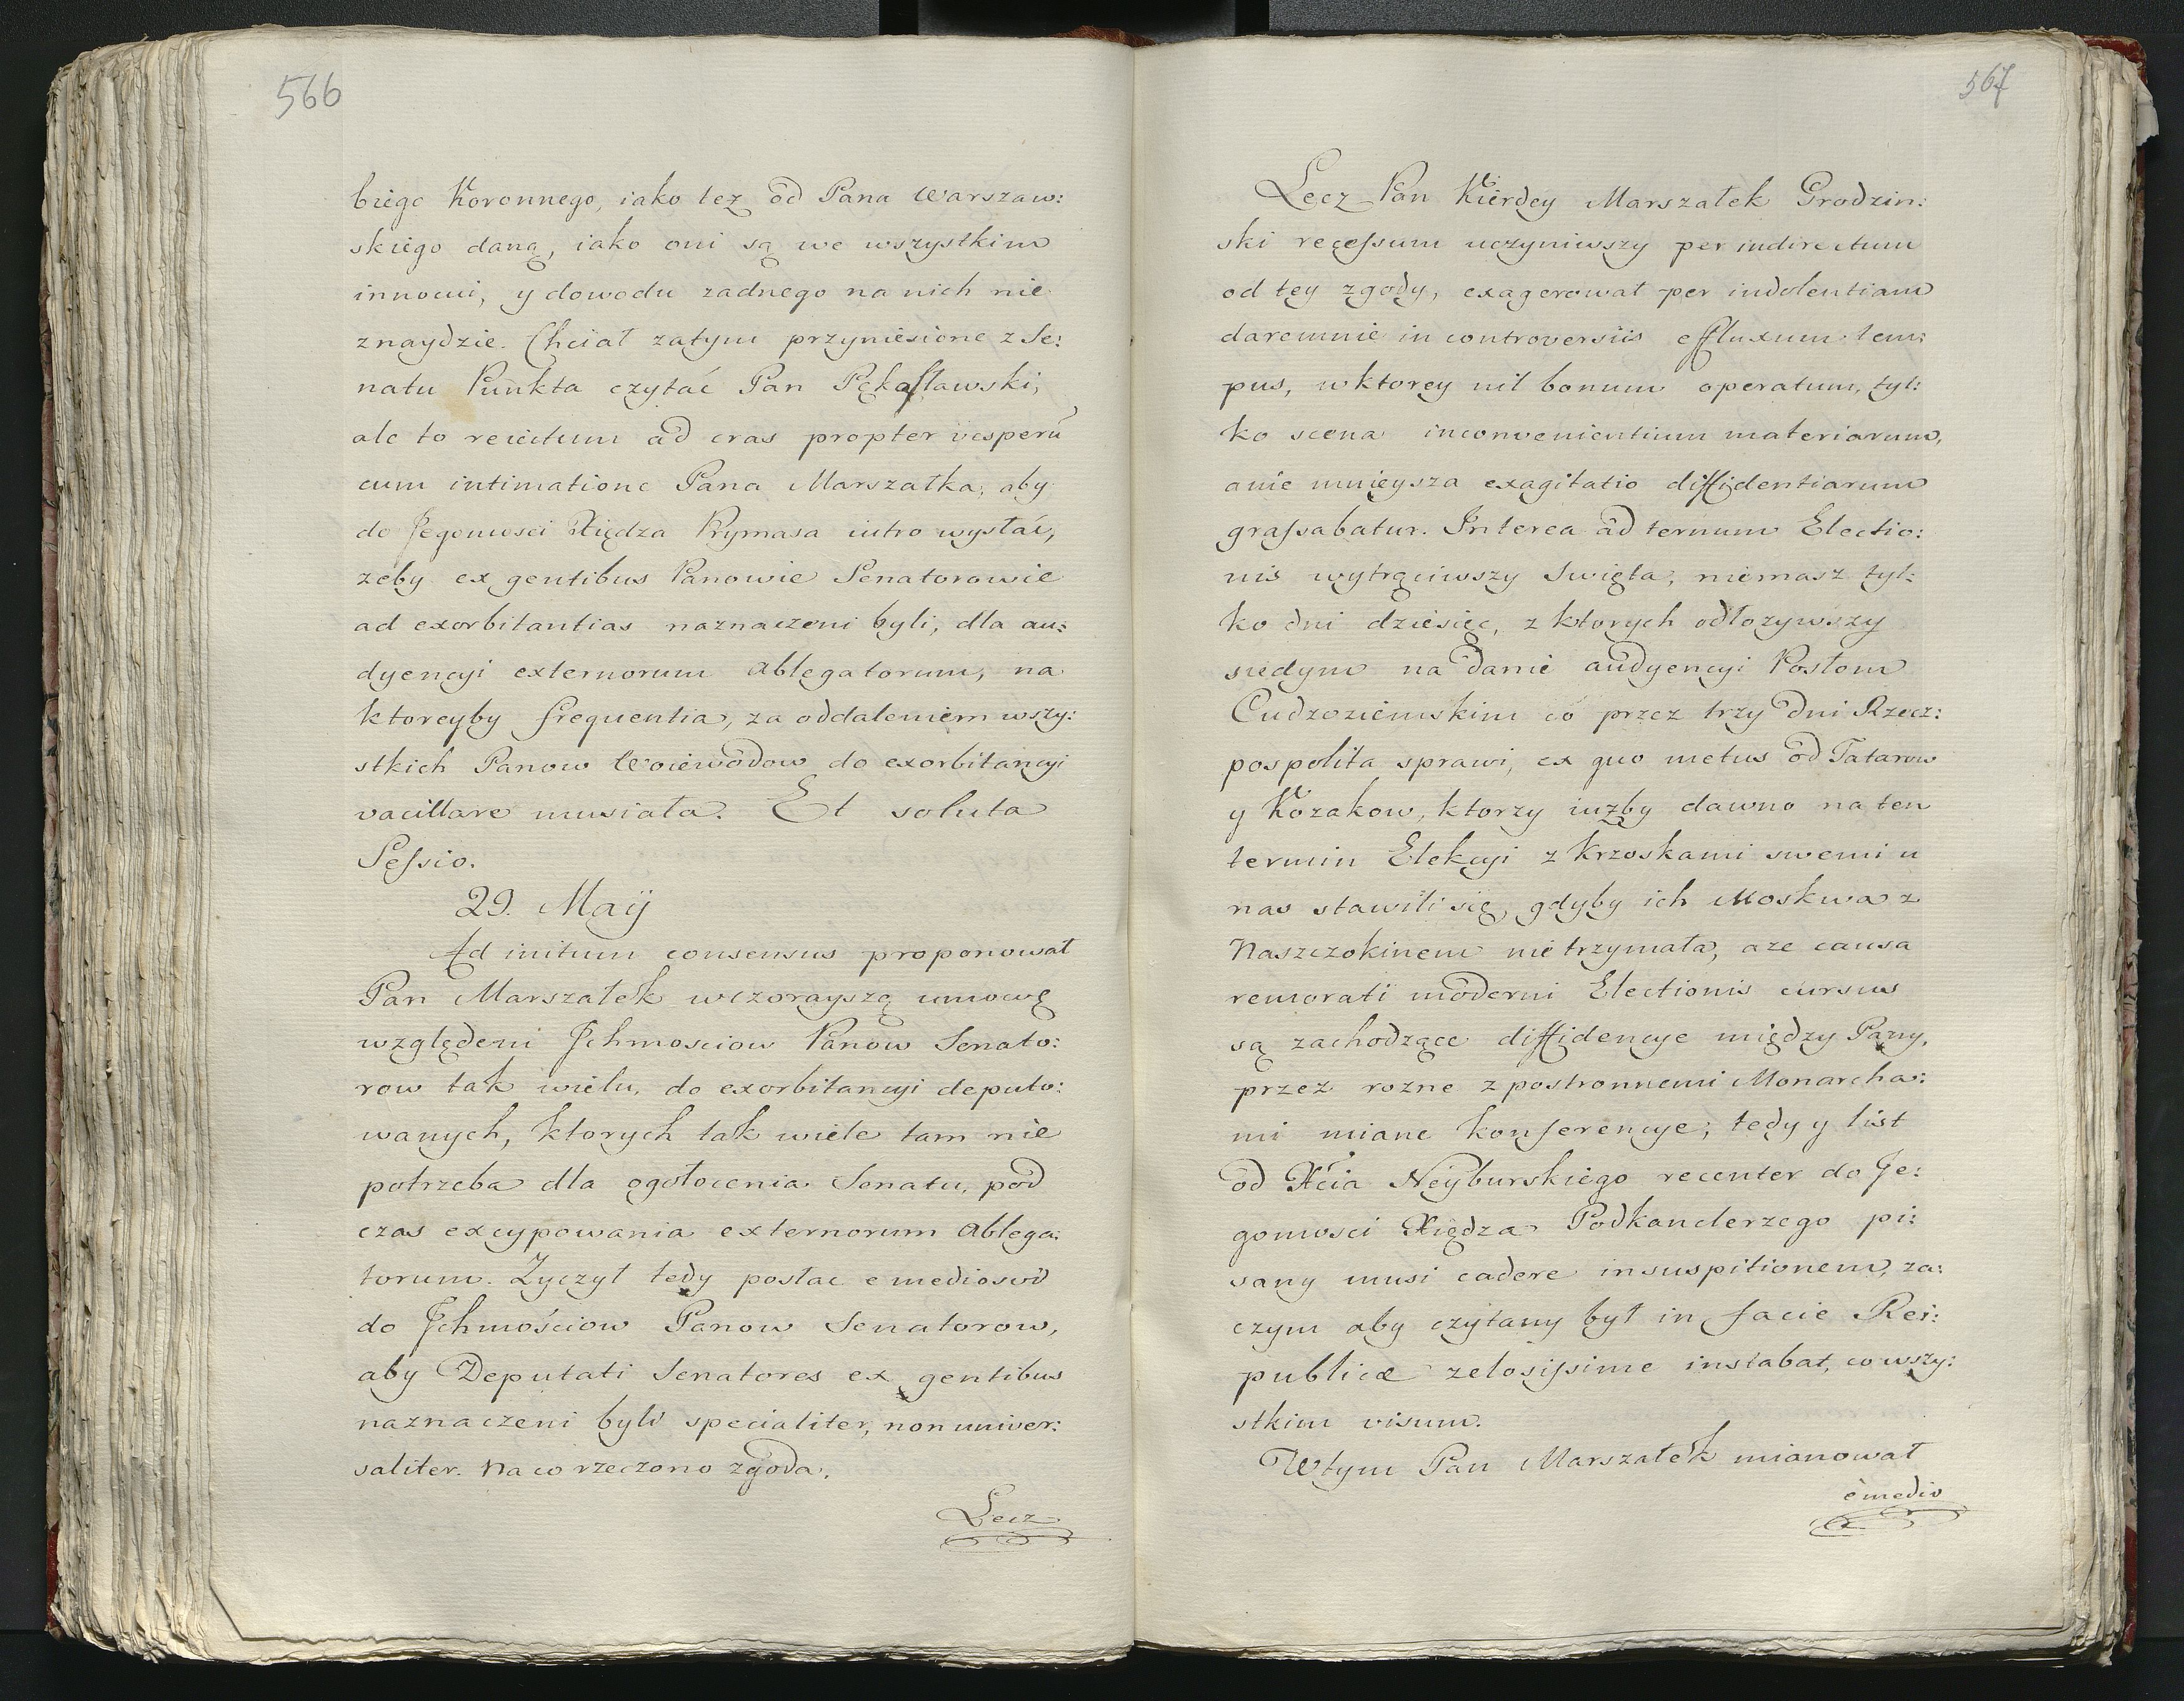 566
biego Koronnego, iako tez od Pana Warszaw:
skiego daną, iako oni są we wszystkim
innowi, y dowodu zadnego na nich nie
znaydzie. Chciał zatym przyniesione z Se:
natu Punkta czytać Pan Pękosławski,
ale to reiectum ad cras propter vesperū
cum intimatione Pana Marszałka, aby
do Jegomosci Xiędza Prymasa iutro wysłać,
zeby ex gentibus Panowie Senatorowie
ad exorbitantias naznaczeni byli, dla au:
dyencyi externorum Ablegatorum, na
ktoreyby frequentia, za oddaleniem wszy:
stkich Panow Woiewodow do exorbitancyi
vacillare musiała. Et soluta
Sessio.
29. Maij
Ad initum consensus proponował
Pan Marszałek wczorayszą umowę
względem Jchmosciow Panow Senato:
row tak wielu, do exorbitancyi deputo:
wanych, ktorych tak wiele tam nie
potrzeba dla ogołocenia Senatu, pod
czas excypowania externorum Ablega:
torum. Zyczył tedy posłac e medio sui
do Jchmościow Panow Senatorow,
aby Deputati Senatores ex gentibus
naznaczeni byli specialiter, non univer:
saliter. Na co rzeczono zgoda.
Lecz
567
Lecz Pan Kierdey Marszałek Grodzin:
ski recessum uczyniwszy per indirectum
od tey zgody, exagerował per indolentiam
daremnie in controversiis effluxum tem:
pus, w ktorey nil bonum operatum, tyl:
ko scena inconvenientium materiarum,
a nie mnieysza exagitatio diffidentiarum
grassabatur. Interea ad ternum Electio:
nis wytrąciwszy Swięta, niemasz tyl:
ko dni dziesięc, z ktorych odłozywszy
siedym na danie audyencyi Posłom
Cudzoziemskim co przez trzy dni Rzecz:
pospolita sprawi, ex quo metus od Tatarow
y Kozakow, ktorzy iuzby dawno na ten
termin Elekcyi z Krzoskami swemi u
nas stawili się, gdyby ich Moskwa z
Naszczokinem nie trzymała, aze causa
remorati moderni Electionis cursus
są zachodzące diffidencye między Pany,
przez rozne z postronnemi Monarcha:
mi miane konferencye; tedy y list
od Xcia Neyburskiego recenter do Je:
gomosci Xiędza Podkanclerzego pi:
sany musi cadere in suspitionem, za:
czym aby czytany był in facie Rei:
publicæ zelosissime instabat, co wszy:
stkim visum.
Wtym Pan Marszałek mianował
è medio